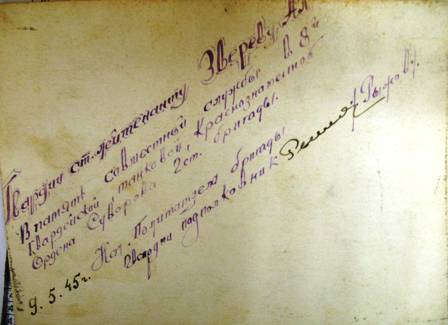 Гвардии ст. лейтенанту Звереву Ал
В память совместной службы в 8й
Гвардейской танковой, Краснознаменной
Ордена Суворова 2 ст. бригады.
Нач. Политотдела бригады
Гвардии подполковник (Рыжов).
9. 5. 45г.